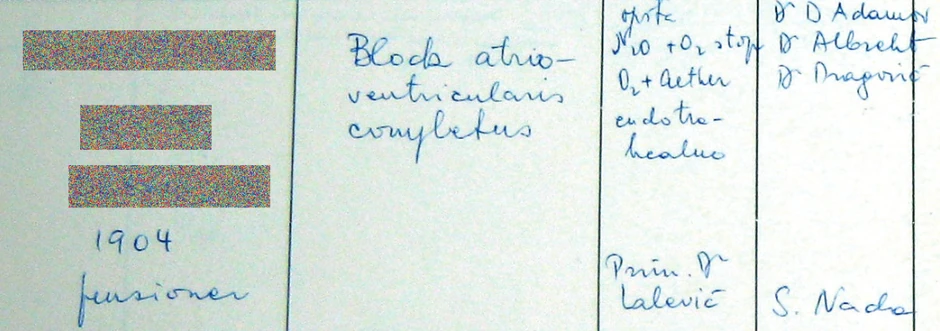 1904
pensioner
Block atrio-
ventricularis
completus
opšta
N2O + O2 stop
O2 + Aether
endotra-
healno
Prim. Dr
Lalević
Dr D Adamov
Dr Albrecht
Dr Dragović
S. Nada